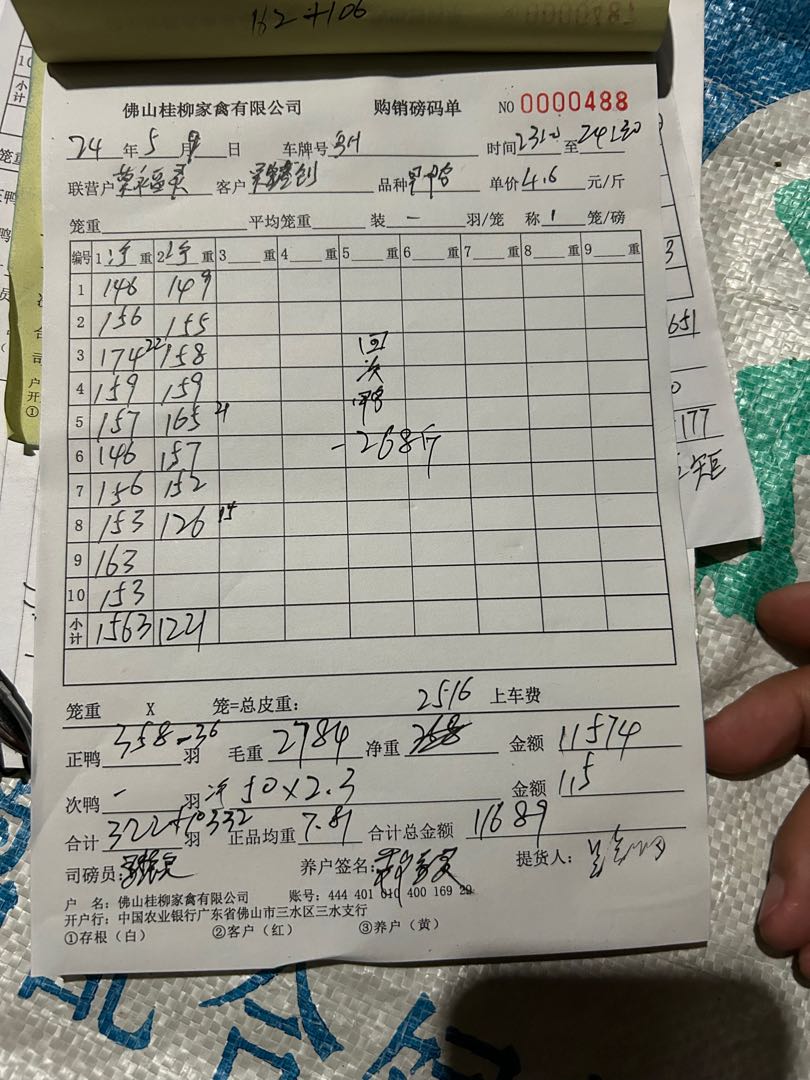 162+106
佛山桂柳家禽有限公司 购销磅码单 NO 0000488
24 年 5 月 日 车牌号 时间 2310 至 24130
联营户 客户 品种 单价 4.6 元/斤
笼重 平均笼重 装 一 羽/笼 称 1 笼/磅
编号 1 净 重 2 净 重 3 重 4 重 5 重 6 重 7 重 8 重 9 重
1 146 149
2 156 155
3 174 22 158 回
4 159 159 次
5 157 165 21 鸭
6 146 157 -268斤
7 156 152
8 153 126 15
9 163
10 153
小计 1563 1221
笼重 X 笼=总皮重: 2516 上车费
正鸭 358-36 羽 毛重 2784 净重 268 金额 11574
次鸭 一 羽 净 50×2.3 金额 115
合计 322+10 332 羽 正品均重 7.81 合计总金额 11689
司磅员: 养户签名: 提货人:
户 名: 佛山桂柳家禽有限公司 账号: 444 401 010 400 169 29
开户行: 中国农业银行广东省佛山市三水区三水支行
①存根（白） ②客户（红） ③养户（黄）
651
177